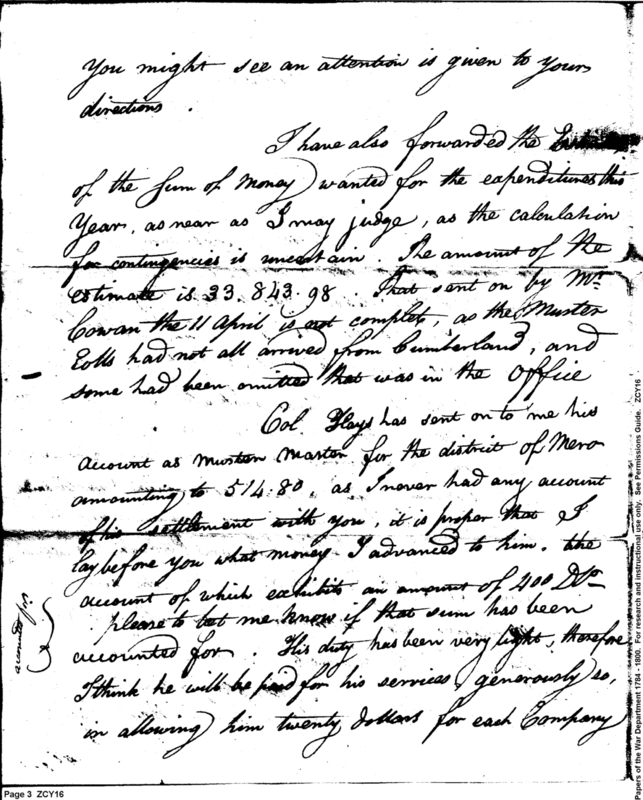 You might see an attention is given to your
directions .
I have also forwarded the
of the Sum of Money wanted for the expenditures this
Year, as near as I may judge, as the calculation
for contingencies is uncertain. The amount of the
estimate is 33.843.98 That sent on by Mr
Cowan the 11 April is not complete, as the Muster
Rolls had not all arrived from Cumberland, and
some had been omitted that was in the Office
Col. Hays has sent on to me his
account as muster master for the district of Mero
amounting to 514.80. as I never had any account
of his settlement with you, it is proper that I
lay before you what money I advanced to him. the
account of which exhibits an amount of 400 Drs
please to let me know if that sum has been
accounted for. His duty has been very light, therefore
I think he will be paid for his services, generously so,
in allowing him twenty dollars for each Company
accounted for
Page 3 ZCY16
Papers of the War Department 1784 - 1800. For research and instructional use only. See Permissions Guide. ZCY16